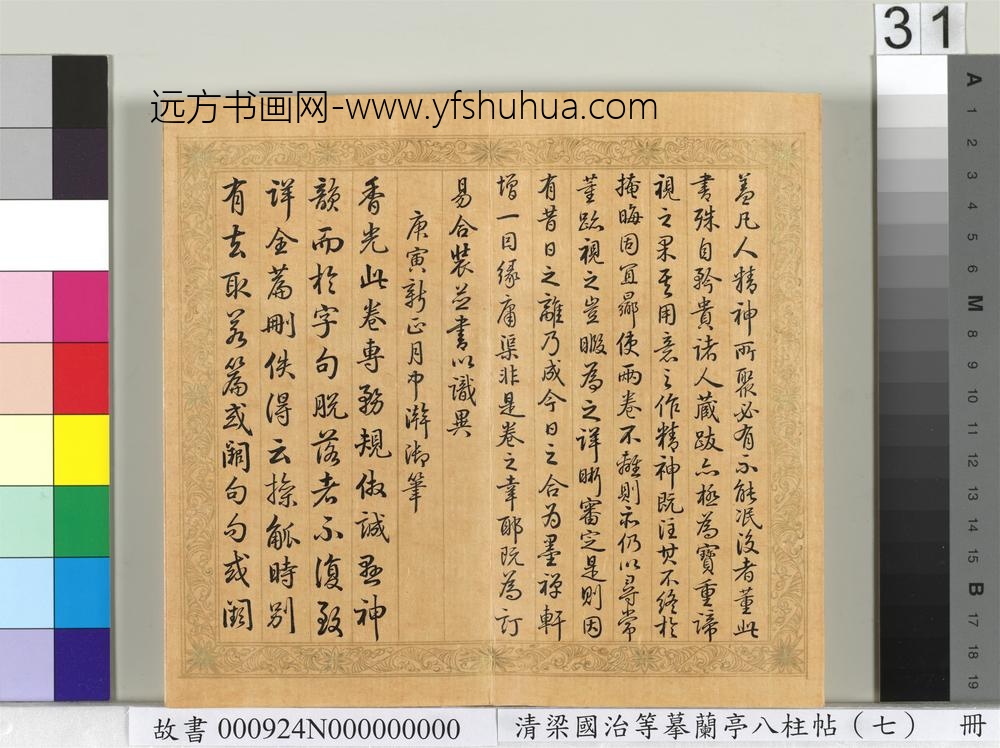 31
远方书画网-www.yfshuhua.com
蓋凡人精神所聚必有不能泯沒者董此
書殊自矜貴諸人藏跋亦極為寶重諦
視之果其用意之作精神既注其不終於
掩晦固宜嚮使兩卷不離則亦仍以尋常
董跡視之豈暇為之詳晰審定是則因
有昔日之離乃成今日之合為墨禪軒
增一因緣庸渠非是卷之幸耶既為訂
易合裝並書以識異
庚寅新正月中澣御筆
香光此卷專務規倣誠懸神
韻而於字句脫落者不復致
詳全篇刪佚得云操觚時別
有去取若篇或闕句句或闕
A 1 2 3 4 5 6 M 8 9 10 11 12 13 14 15 B 17 18 19
故書 000924N000000000
清梁國治等摹蘭亭八柱帖（七） 冊